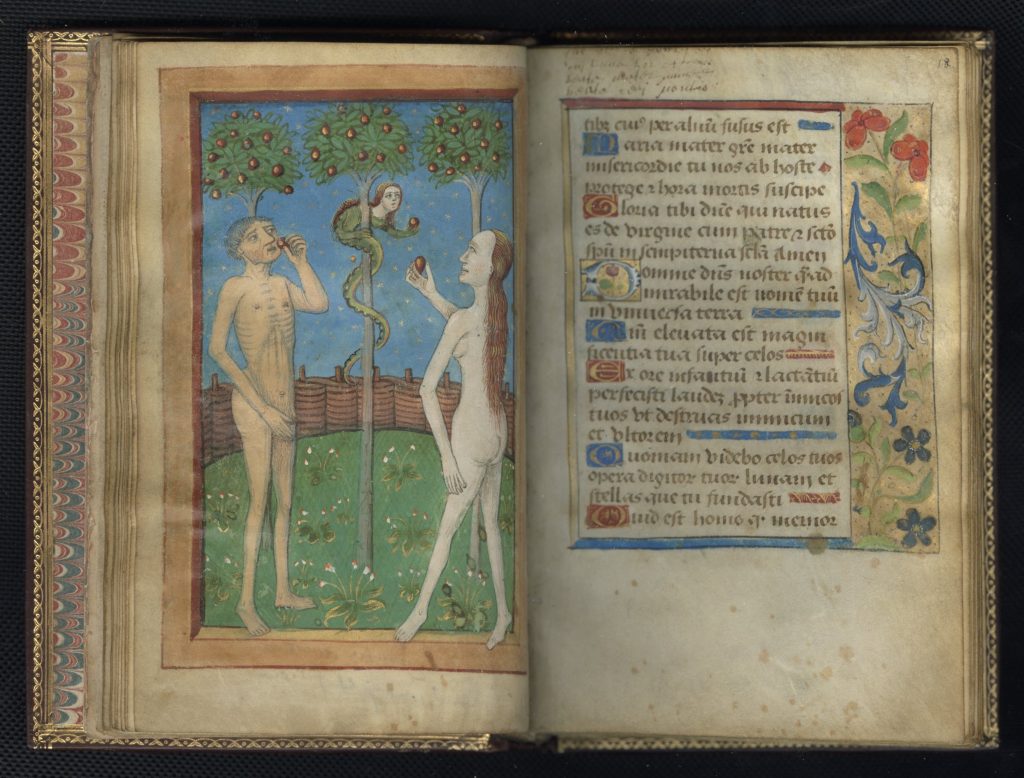 18
tibi eius per aliuu fusus est
Maria mater gre mater
misericordie tu nos ab hoste
protege & hora mortis suscipe
Gloria tibi dne qui natus
es de virgine cum patre & scto
spu in sempiterna scla Amen
Domine dns noster q̃ ad
mirabile est nome tuu
in vniuersa terra
Qm eleuata est magni
ficentia tua super celos
Ex ore infantiu & lactantiu
perfecisti laude ppter inimicos
tuos vt destruas inimicum
et vltorem
Quoniam videbo celos tuos
opera digitor tuor lunam et
stellas que tu fundasti
Quid est homo q memor